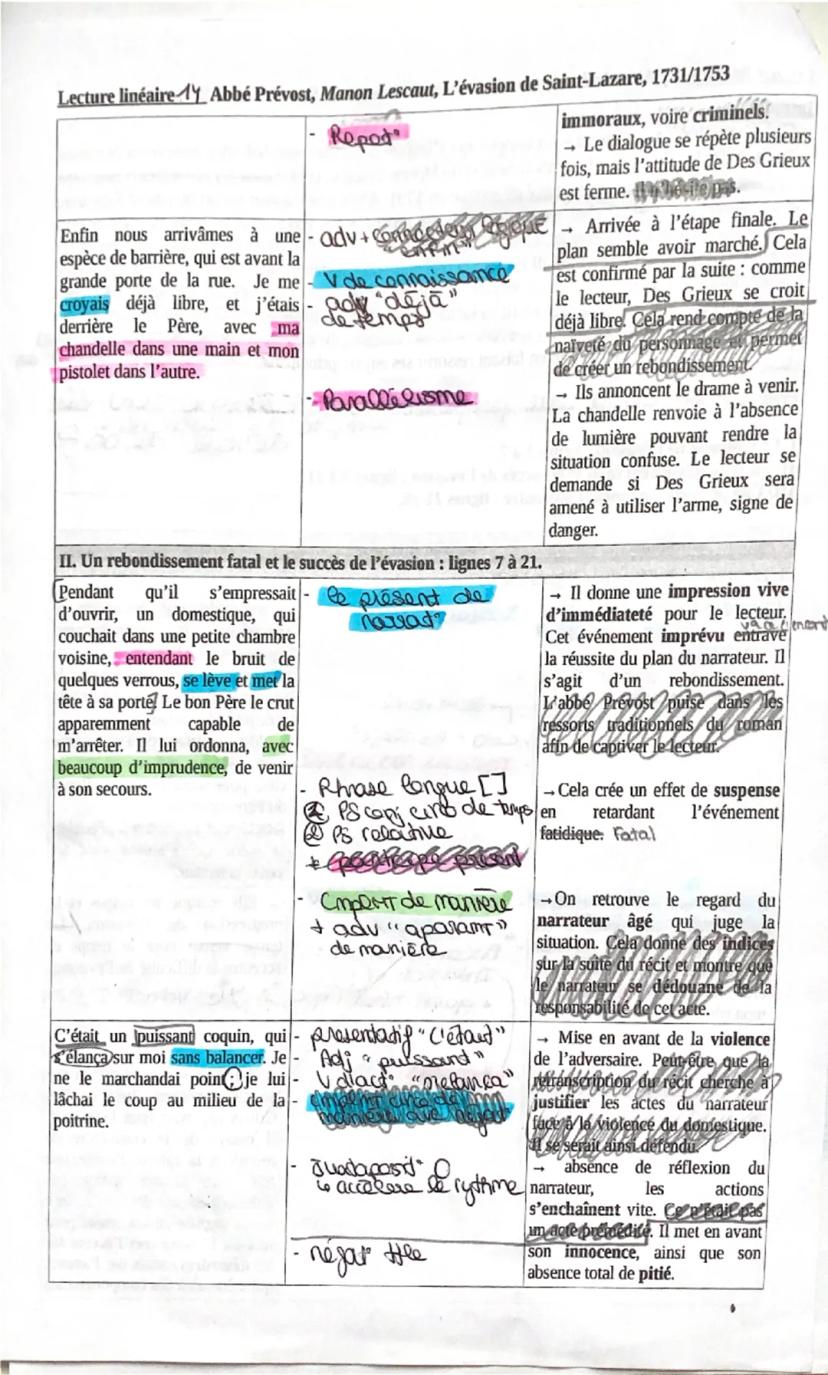 Lecture linéaire 14 Abbé Prévost, Manon Lescaut, L'évasion de Saint-Lazare, 1731/1753
- Répét°
immoraux, voire criminels.
→ Le dialogue se répète plusieurs
fois, mais l'attitude de Des Grieux
est ferme. Il n'hésite pas.
Enfin nous arrivâmes à une
espèce de barrière, qui est avant la
grande porte de la rue. Je me
croyais déjà libre, et j'étais
derrière le Père, avec ma
chandelle dans une main et mon
pistolet dans l'autre.
- adv +
enfin"
- V de connaissance
- adv "déjà"
de temps
- Parallélisme
→ Arrivée à l'étape finale. Le
plan semble avoir marché. Cela
est confirmé par la suite : comme
le lecteur, Des Grieux se croit
déjà libre. Cela rend compte de la
naïveté du personnage et permet
de créer un rebondissement.
→ Ils annoncent le drame à venir.
La chandelle renvoie à l'absence
de lumière pouvant rendre la
situation confuse. Le lecteur se
demande si Des Grieux sera
amené à utiliser l'arme, signe de
danger.
II. Un rebondissement fatal et le succès de l'évasion : lignes 7 à 21.
[Pendant qu'il s'empressait
d'ouvrir, un domestique, qui
couchait dans une petite chambre
voisine, entendant le bruit de
quelques verrous, se lève et met la
tête à sa porte] Le bon Père le crut
apparemment capable de
m'arrêter. Il lui ordonna, avec
beaucoup d'imprudence, de venir
à son secours.
- le présent de
narrat°
- Phrase longue [ ]
① PS conj circ de temps
② PS relative
+ participe présent
- Cmplmt de manière
+ adv "aparamt"
de manière
→ Il donne une impression vive
d'immédiateté pour le lecteur.
Cet événement imprévu entrave
la réussite du plan du narrateur. Il
s'agit d'un rebondissement.
L'abbé Prévost puise dans les
ressorts traditionnels du roman
afin de captiver le lecteur.
→ Cela crée un effet de suspense
en retardant l'événement
fatidique. Fatal
→ On retrouve le regard du
narrateur âgé qui juge la
situation. Cela donne des indices
sur la suite du récit et montre que
le narrateur se dédouane de la
responsabilité de cet acte.
C'était un puissant coquin, qui
s'élança sur moi sans balancer. Je
ne le marchandai point ; je lui
lâchai le coup au milieu de la
poitrine.
- presentatif "C'était"
- Adj "puissant"
- V d'act°
-
- Juxtaposit° O
↳ accélère le rythme
- négat° tle
→ Mise en avant de la violence
de l'adversaire. Peut-être que la
retranscription du récit cherche à
justifier les actes du narrateur
face à la violence du domestique.
Il se serait ainsi défendu.
→ absence de réflexion du
narrateur, les actions
s'enchaînent vite. Ce n'était pas
un acte prémédité. Il met en avant
son innocence, ainsi que son
absence total de pitié.